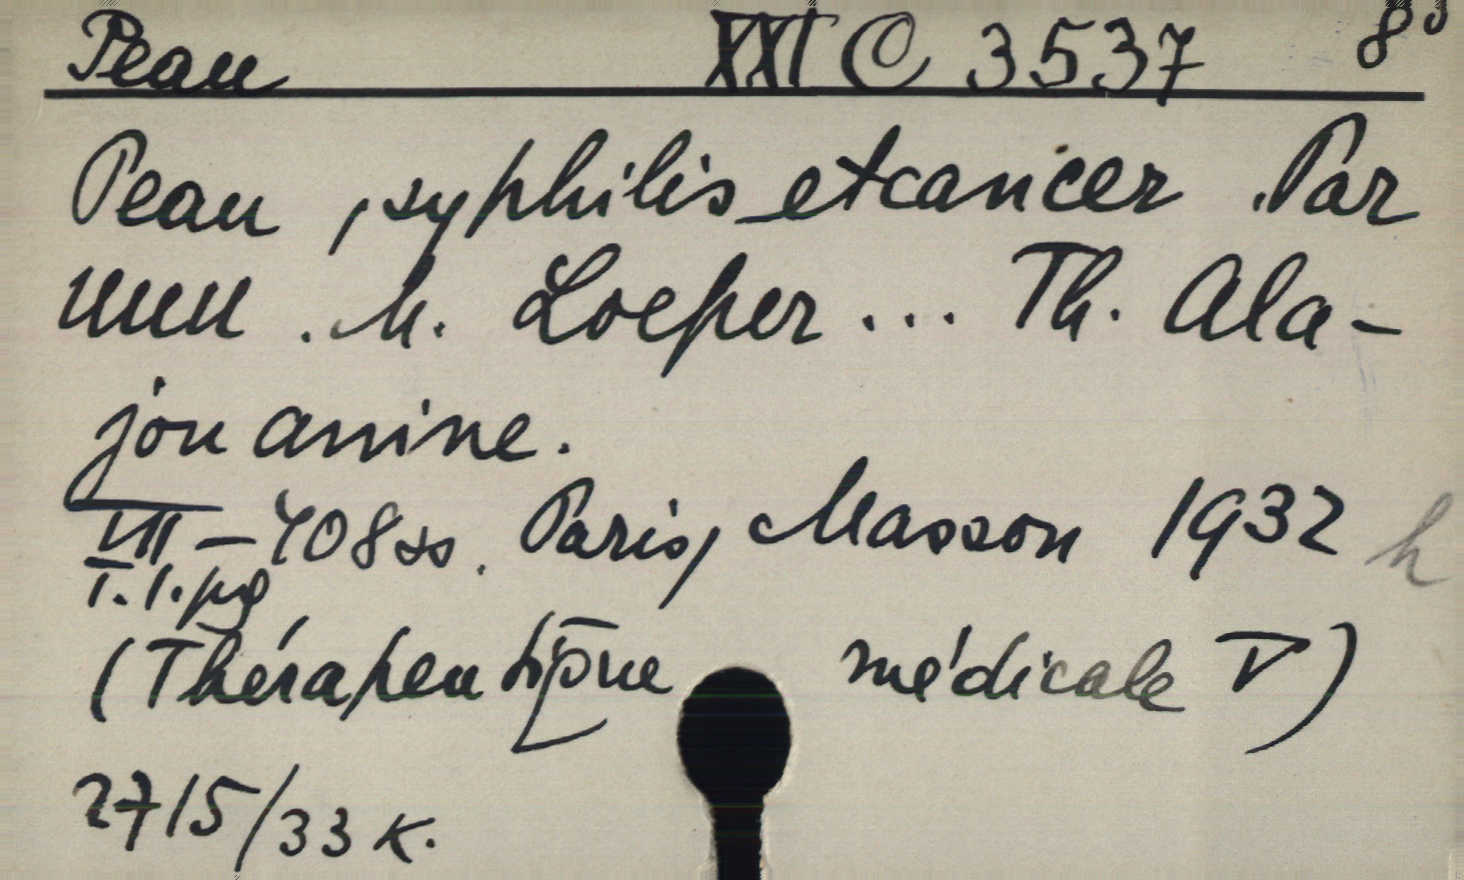 Peau XXI C 3537 8°
Peau, syphilis et cancer. Par
MM. M. Loeper... Th. Ala-
jouanine.
VIII-408 ss. Paris, Masson 1932 h
T. 1. pg
(Thérapeutique médicale V)
2715/33 K.